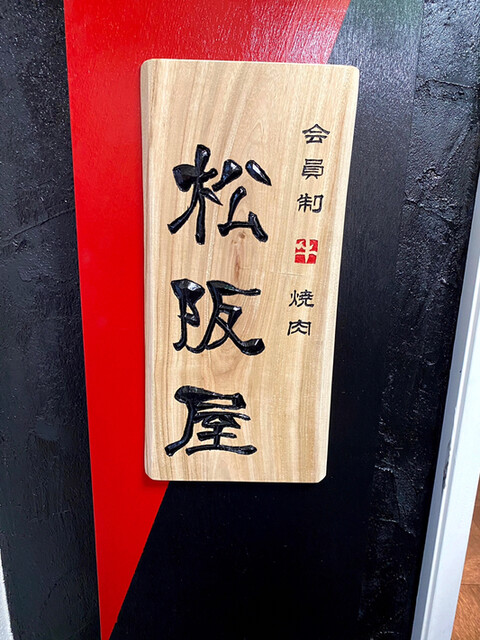 会員制 牛 焼肉
松阪屋